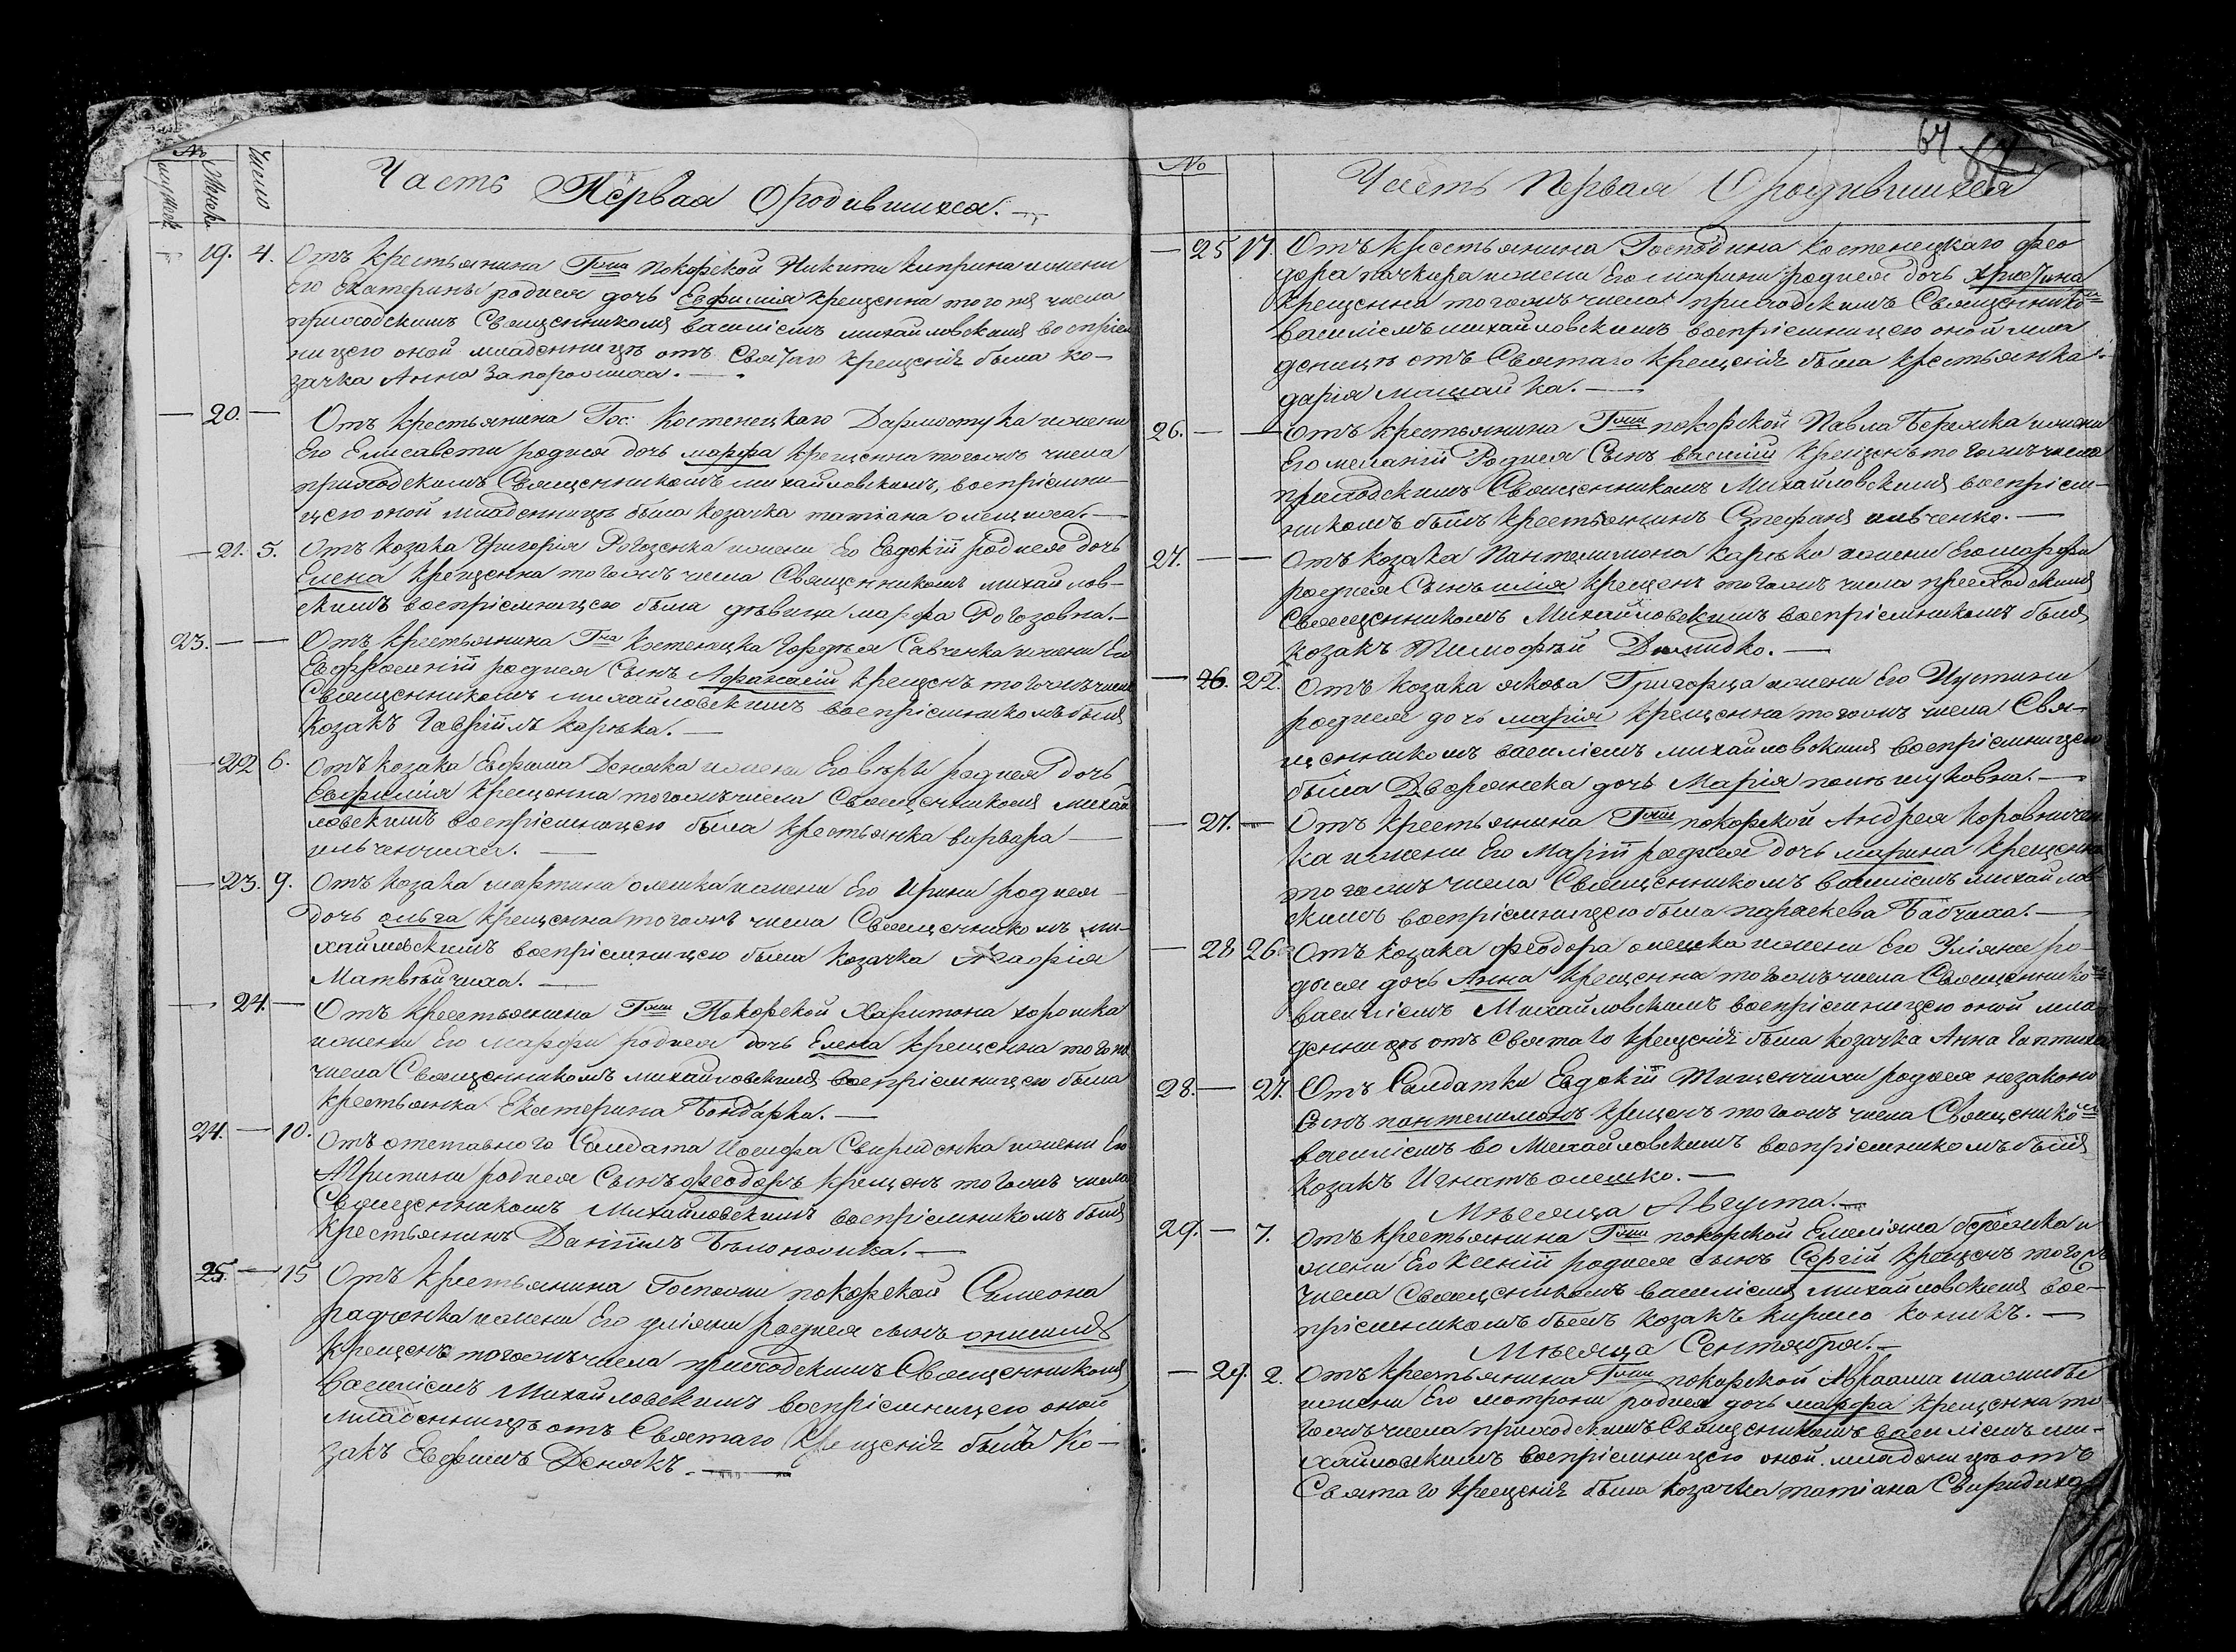 No
Мужеска
Женска
Число
Часть Первая О родившихся.
19. 4. Отъ крестьянина Гжи Покорской Никити Киприна и жени
Его Екатерины родися дочь Евфимія крещенна того жъ числа
приходскимъ Священникомъ Василіемъ Михайловскимъ воспріем
ницею оной младенницѣ отъ Святаго крещенія была ко-
зачка Анна Запорошиха.
20. Отъ крестьянина Гос: Костенецкаго Дармостука и жени
Его Елисавети родися дочь Марфа крещенна того жъ числа
приходскимъ Священникомъ Михайловскимъ, воспріемни-
цею оной младенницѣ была козачка Татіана Олещиха.
21. 5. Отъ козака Григорія Рогозенка и жени Его Евдокіи родися дочь
Елена крещенна того жъ числа Священникомъ Михайлов-
скимъ воспріемницею была дѣвица Марфа Рогозовна.
23. Отъ крестьянина Гна Костенецка Гордѣя Савченка и жени Его
Евфросиніи родися Сынъ Афанасій крещенъ того жъ числа
Священникомъ Михайловскимъ воспріемникомъ былъ
козакъ Гавріилъ Карѣка.
22 6. Отъ козака Евфима Деняка и жени Его Вѣры родися дочь
Евфимія крещенна того жъ числа Священникомъ Михай
ловскимъ воспріемницею была крестьянка Варвара
Ильченчиха.
23. 9. Отъ козака Мартина Олешка и жени Его Ирини родися
дочь Ольга крещенна того жъ числа Священникомъ Ми-
хайловскимъ воспріемницею была козачка Агафія
Матвѣйчиха.
24. Отъ крестьянина Гжи Покорской Харитона Хорошка
и жени Его Марфи родися дочь Елена крещенна того жъ
числа Священникомъ Михайловскимъ воспріемницею была
крестьянка Екатерина Бондарка.
24. 10. Отъ отставного Салдата Иосифа Свириденка и жени Его
Агрипини родися Сынъ Феодоръ крещенъ того жъ числа
Священникомъ Михайловскимъ воспріемникомъ былъ
крестьянинъ Даніилъ Бѣлоножка.
25. 15 Отъ крестьянина Госпожи Покорской Симеона
Радченка и жени Его Уліяни родися сынъ Онисимъ
крещенъ того жъ числа приходскимъ Священникомъ
Василіемъ Михайловскимъ воспріемницею оной
младенницѣ отъ Святаго крещенія была Ко-
закъ Евфимъ Денякъ.
64
No
Часть Первая О родившихся
25 17. Отъ крестьянина Господина Костенецкаго Фео
дора Пачкора и жени Его Марини родися дочь Христина
крещенна того жъ числа приходскимъ Священнико
Василіемъ Михайловскимъ воспріемницею оной мла
деницѣ отъ Святаго крещенія была крестьянка
Дарія Машайка.
26. Отъ крестьянина Гжи Покорской Павла Бережка и жени
Его Меланіи Родися Сынъ Василій крещенъ того жъ числа
приходскимъ Священникомъ Михайловскимъ воспріем-
никомъ былъ крестьянинъ Стефанъ Ильченко.
27. Отъ козака Пантелимона Карѣко и жени Его Марфи
родися Сынъ Илія крещенъ того жъ числа приходскимъ
Священникомъ Михайловскимъ воспріемникомъ былъ
козакъ Тимофѣй Демидко.
26. 22. Отъ козака Якова Григорца и жени Его Иустини
родися дочь Марія крещенна того жъ числа Свя-
щенникомъ Василіемъ Михайловскимъ воспріемницею
была Дворянска дочь Марія
27. Отъ крестьянина Гжи Покорской Андрея Коровничен
ка и жени Его Маріи родися дочь Марина крещенна
того жъ числа Священникомъ Василіемъ Михайлов
скимъ воспріемницею была Параскева Бабчиха.
28 26 Отъ козака Феодора Олешка и жени Его Уліяни ро-
дися дочь Анна крещенна того жъ числа Священнико
Василіемъ Михайловскимъ воспріемницею оной мла-
денницѣ отъ Святаго крещенія была козачка Анна Гаптиха
28. 27. Отъ Салдатки Евдокіи Тищенчихи родися незаконо
Сынъ Пантелимонъ крещенъ того жъ числа Священико
Василіемъ Во Михайловскимъ воспріемникомъ былъ
козакъ Игнатъ Олешко.
Мѣсяца Августа.
29. 7. Отъ крестьянина Гжи Покорской Емеліяна Бережка и
жени Его Ксеніи родися сынъ Сергій крещенъ того жъ
числа Священикомъ Василіемъ Михайловскимъ вос-
пріемникомъ былъ козакъ Кирило Коникъ.
Мѣсяца Сентября.
29. 2. Отъ крестьянина Гжи Покорской Авраама
и жени Его Мотрони родися дочь Марфа крещенна то
гожъ числа приходскимъ Священикомъ Василіемъ Ми-
хайловскимъ воспріемницею оной младеницѣ отъ
Святаго крещенія была козачка Татіана Свиридиха